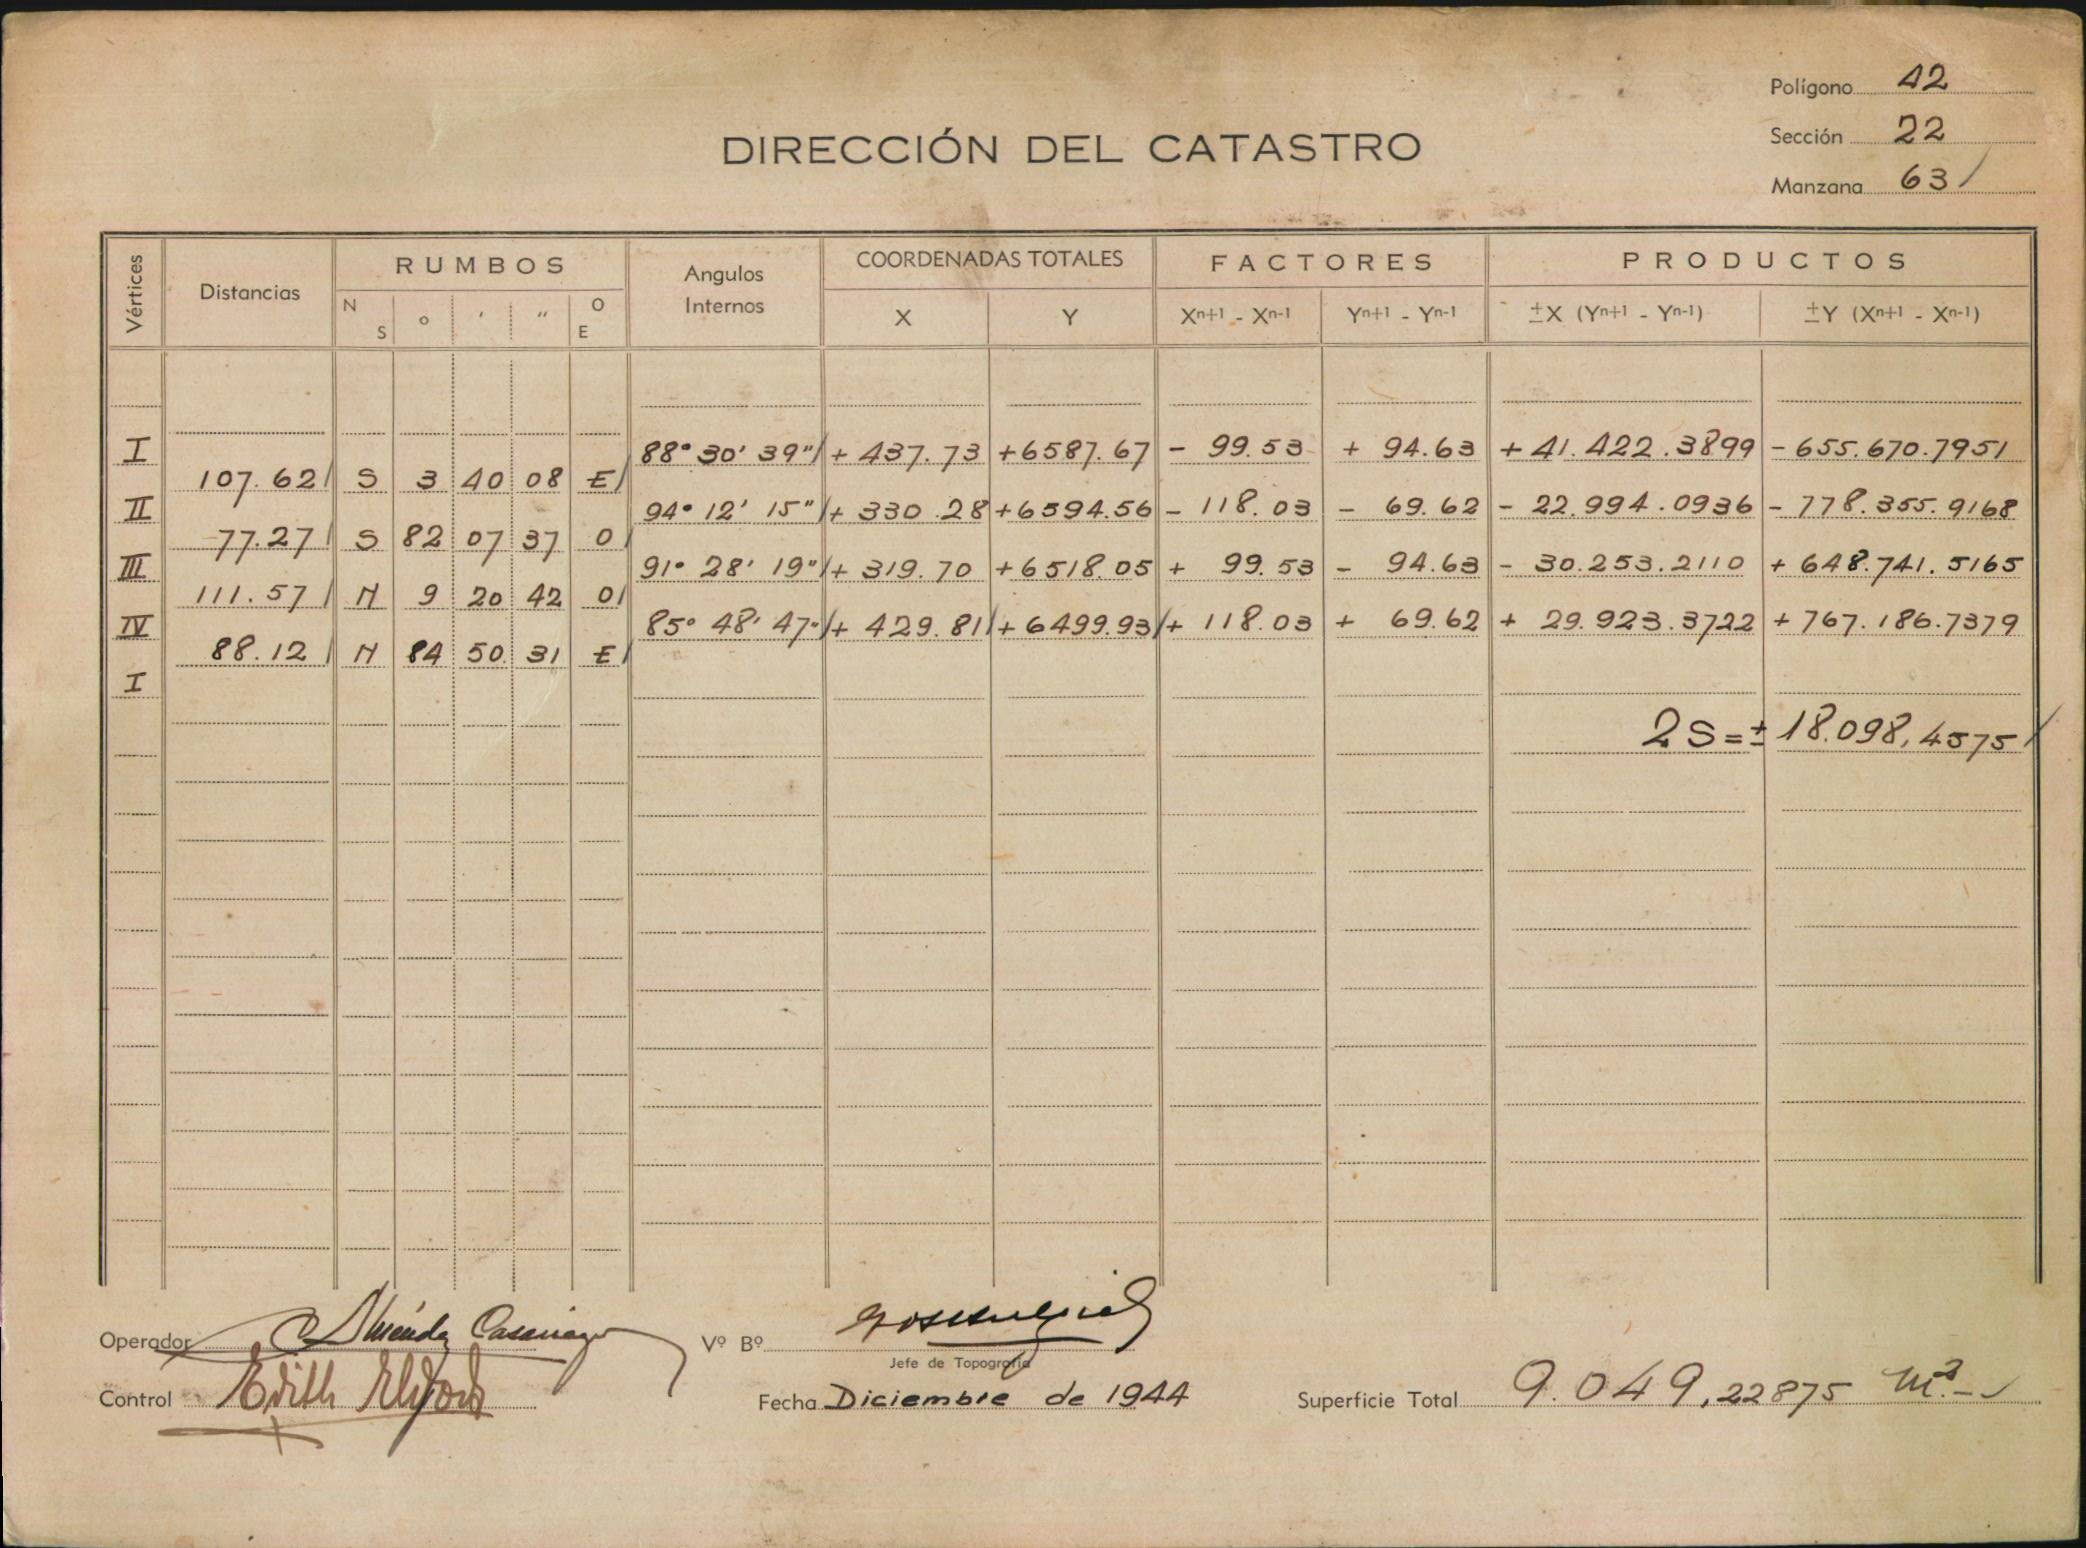 Polígono 42
Sección 22
Manzana 63
DIRECCIÓN DEL CATASTRO
Vértices Distancias RUMBOS Angulos Internos COORDENADAS TOTALES FACTORES PRODUCTOS
N S ° ' '' O E X Y Xn+1 - Xn-1 Yn+1 - Yn-1 ±X (Yn+1 - Yn-1) ±Y (Xn+1 - Xn-1)
I 88° 30' 39" + 437.73 +6587.67 - 99.53 + 94.63 + 41.422.3899 - 655.670.7951
107.62 S 3 40 08 E
II 94° 12' 15" + 330.28 +6594.56 - 118.03 - 69.62 - 22.994.0936 - 778.355.9168
77.27 S 82 07 37 O
III 91° 28' 19" + 319.70 +6518.05 + 99.53 - 94.63 - 30.253.2110 + 648.741.5165
111.57 N 9 20 42 O
IV 85° 48' 47" + 429.81 +6499.93 + 118.03 + 69.62 + 29.923.3722 + 767.186.7379
88.12 N 84 50 31 E
I
2S=± 18.098,4575
Operador Méndez Vº Bº
Jefe de Topografía
Control Edith Fecha Diciembre de 1944 Superficie Total 9.049,22875 m².-